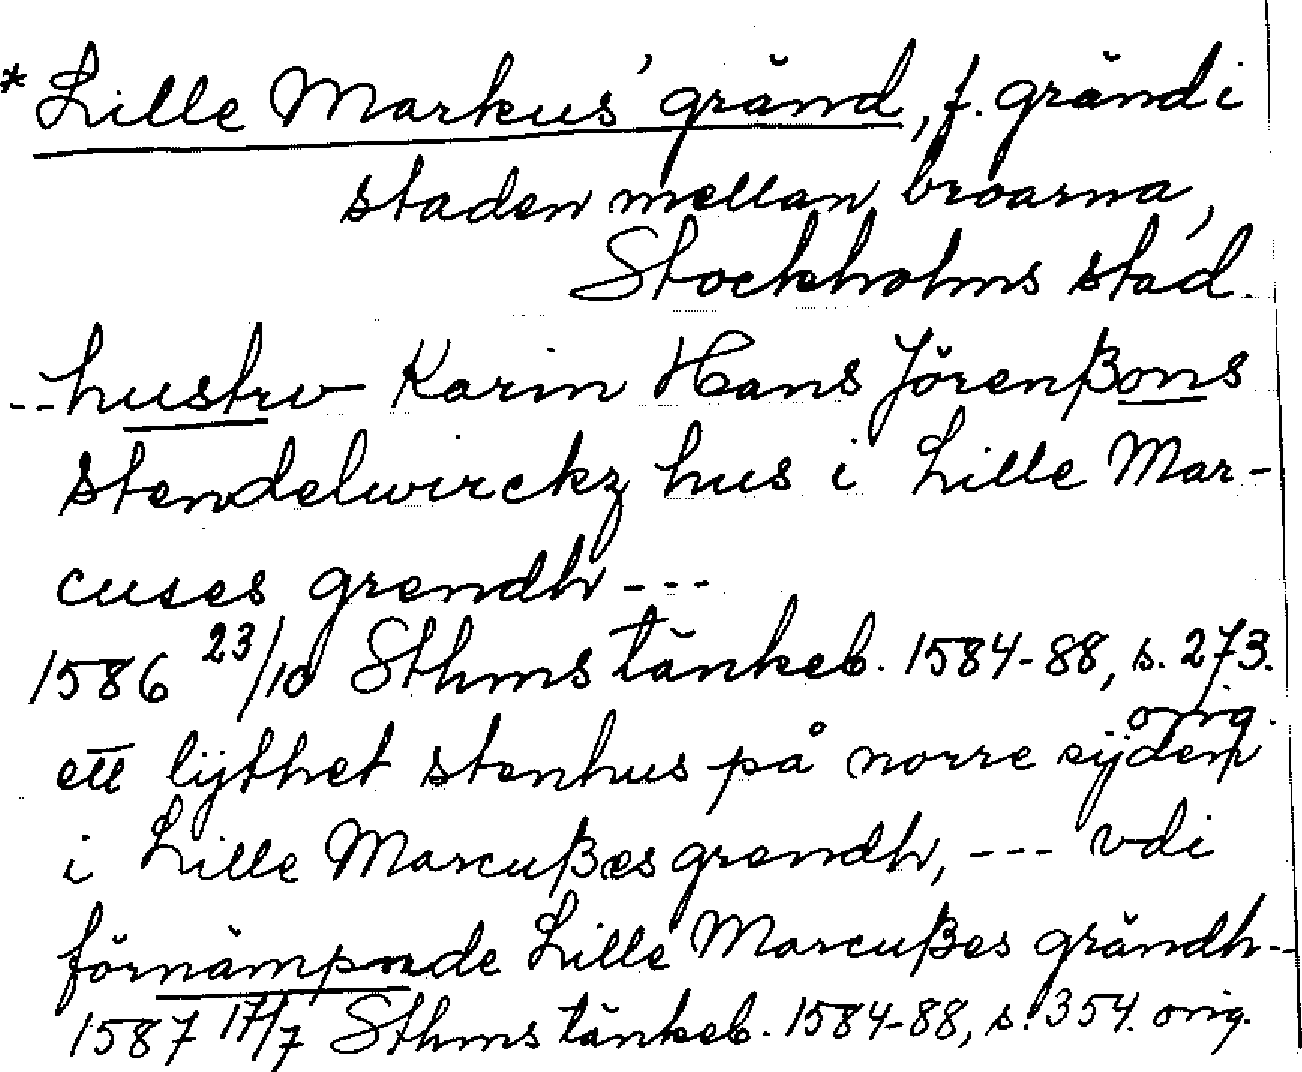 * Lille Markus' gränd, f. gränd i
staden mellan broarna,
Stockholms stad.
-- hustrv Karin Hans Jörenßons
stendelwirckz hus i Lille Mar-
cuses grendh ---
1586 23/10 Sthms tänkeb. 1584-88, s. 273.
orig.
ett lijthet stenhus på norre sijden
i Lille Marcußes grendh, --- vdi
förnämpnde Lille Marcußes grändh--
1587 17/7 Sthms tänkeb. 1584-88, s. 354. orig.